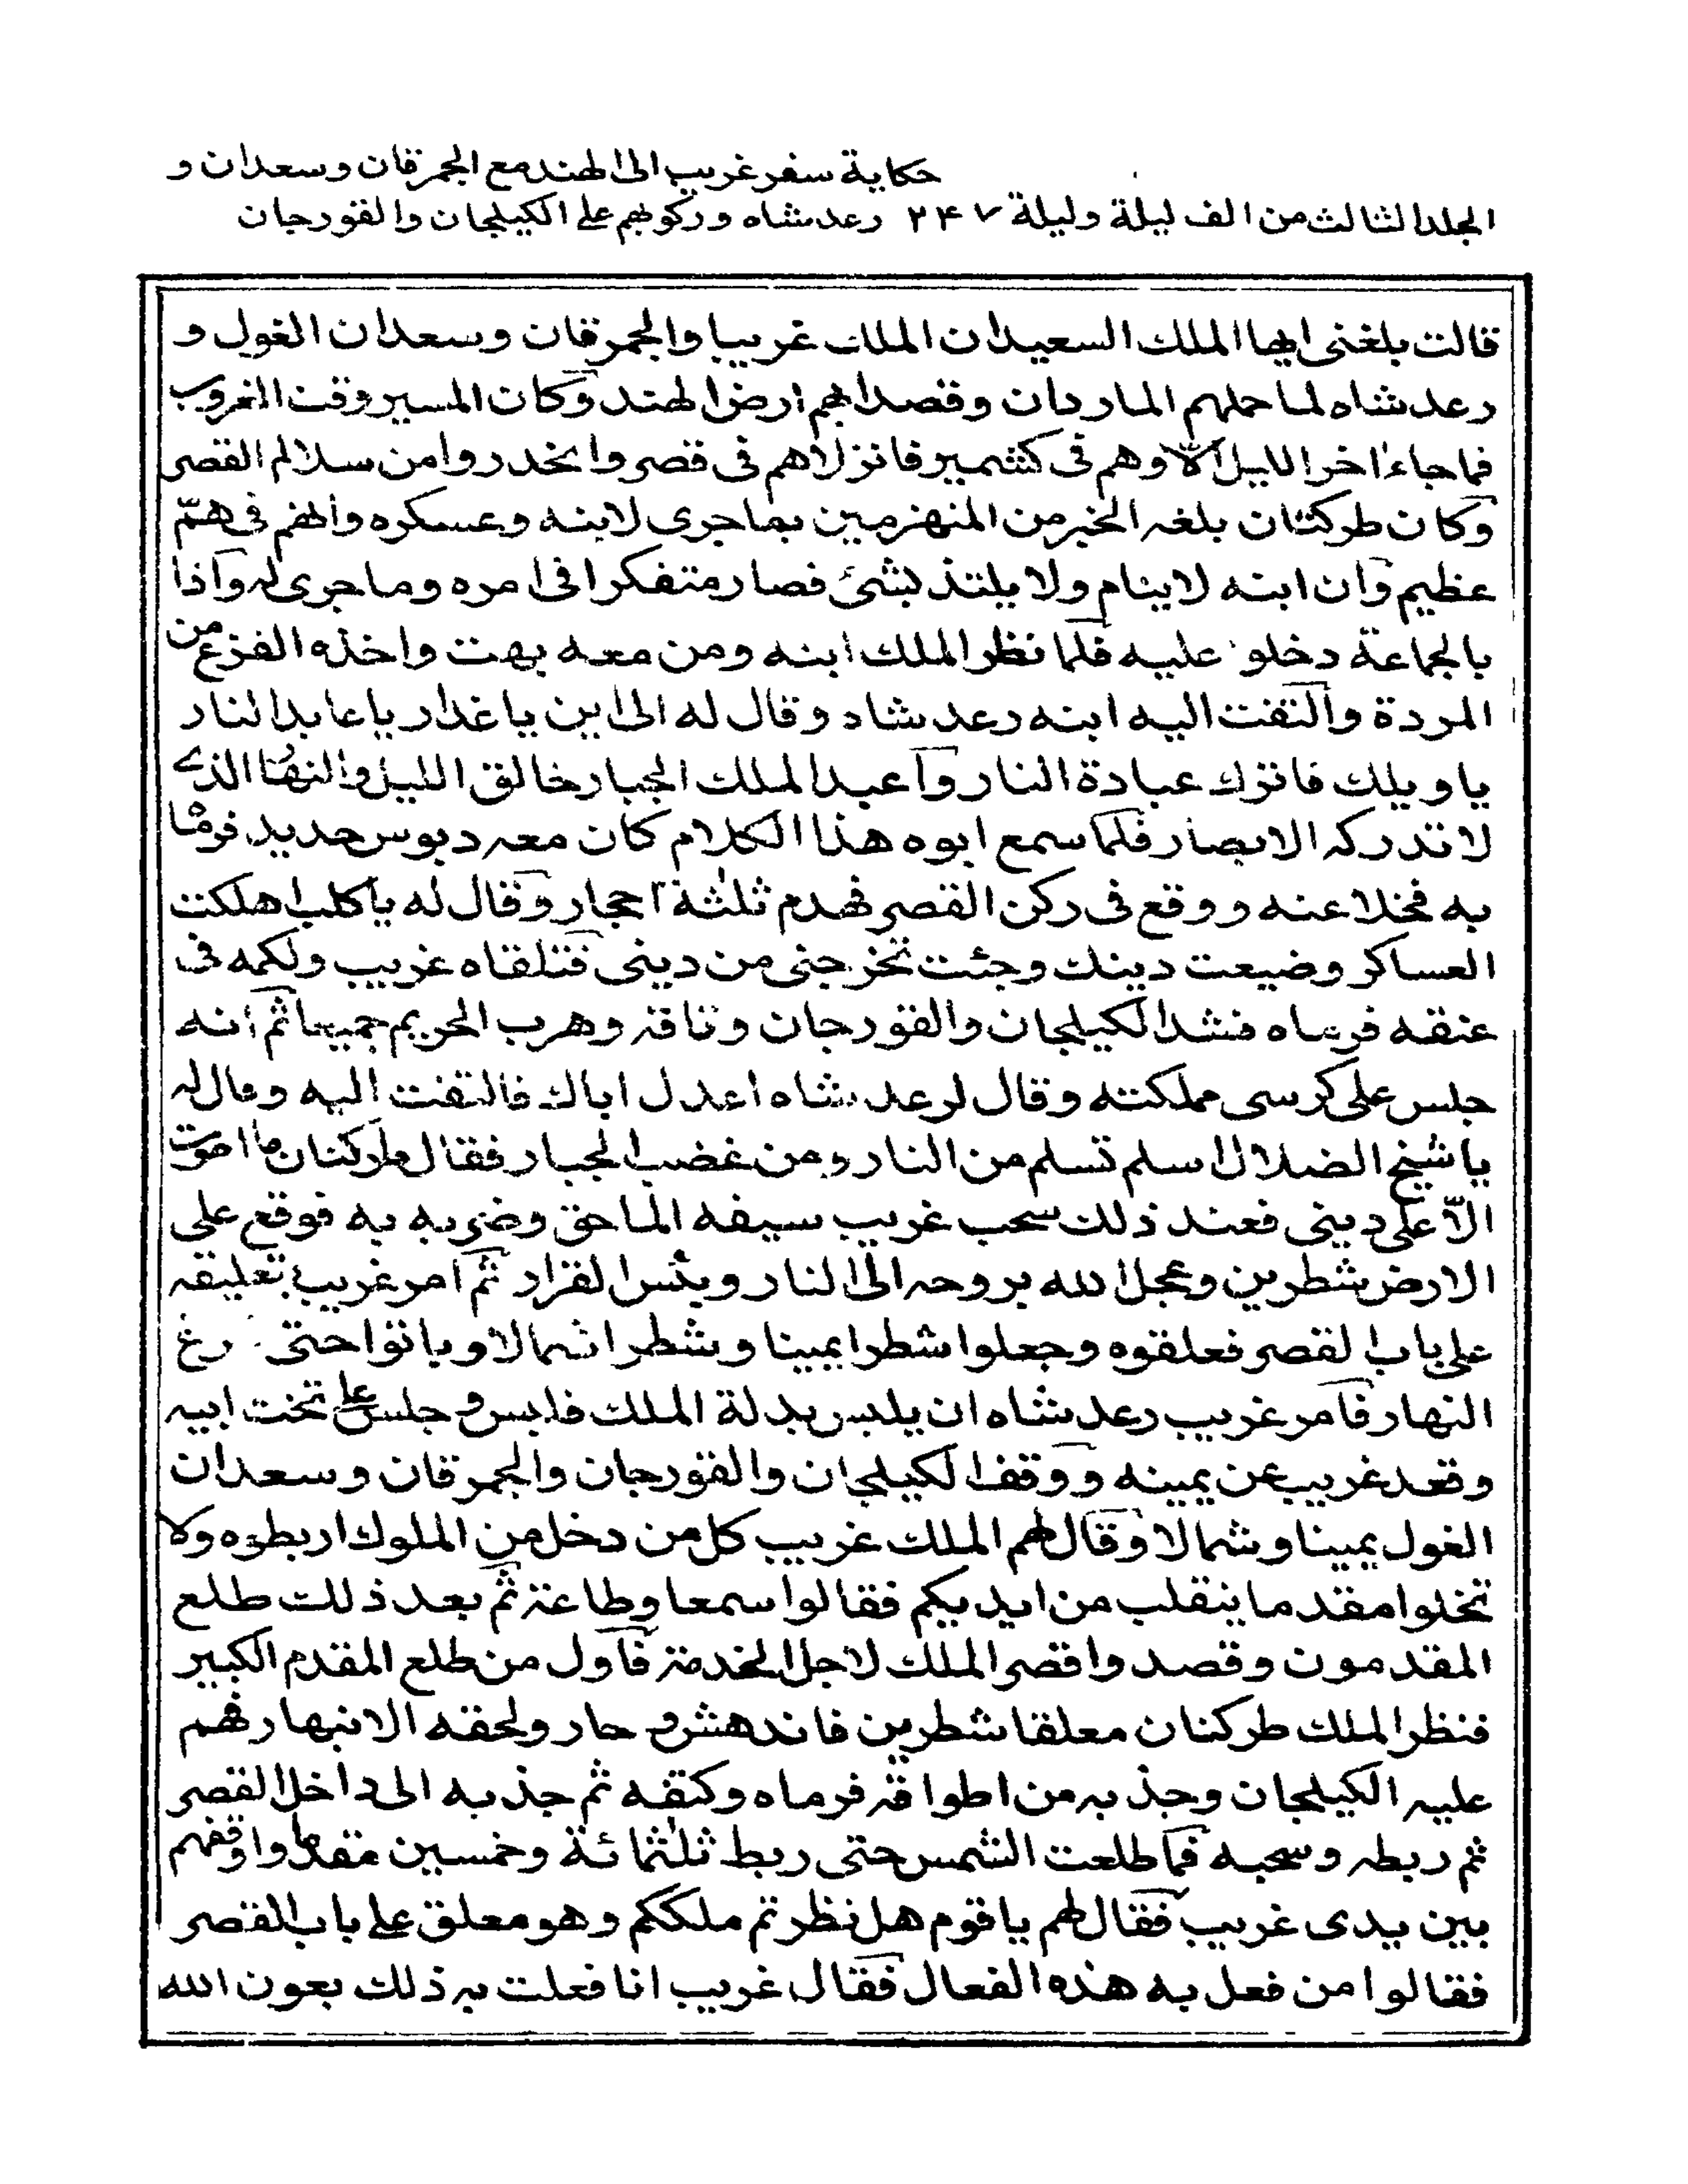 حكاية سفر غريب الى الهند مع الجمرقان وسعدان و
الجلد الثالث من الف ليلة وليلة ٢٤٧ رعد شاه وركوبهم على الكيلجان والقورجان
قالت بلغنى ايها الملك السعيد ان الملك غريبا والجمرقان وسعدان الغول و
رعد شاه لما حملهم الماردان وقصدا بهم ارض الهند وكان المسير وقت الغروب
فما جاء اخر الليل الّا وهم فى كشمير فانزلاهم فى قصر وانحدروا من سلالم القصر
وكان طركنان بلغه الخبر من المنهزمين بما جرى لابنه وعسكره وانهم فى همّ
عظيم وان ابنه لاينام ولا يلتذ بشئ فصار متفكرا فى امره وما جرى له واذا
بالجماعة دخلوا عليه فلما نظر الملك ابنه ومن معه بهت واخذه الفزع من
المردة والتفت اليه ابنه رعد شاه وقال له الى اين يا غدار يا عابد النار
يا ويلك فاترك عبادة النار واعبد الملك الجبار خالق الليل والنهار الذى
لا تدركه الابصار فلما سمع ابوه هذا الكلام كان معه دبوس حديد فرماه
به فخلا عنه ووقع فى ركن القصر فهدم ثلثة احجار وقال له يا كلب اهلكت
العساكر وضيعت دينك وجئت تخرجنى من دينى فتلقاه غريب ولكمه فى
عنقه فرماه فشد الكيلجان والقورجان وثاقه وهرب الحريم جميعا ثم انه
جلس على كرسى مملكته وقال لرعد شاه اعدل اباك فالتفت اليه وقال له
يا شيخ الضلال اسلم تسلم من النار ومن غضب الجبار فقال طركنان ما اموت
الّا على دينى فعند ذلك سحب غريب سيفه الماحق وضربه به فوقع على
الارض شطرين وعجل الله بروحه الى النار وبئس القرار ثم امر غريب بتعليقه
على باب القصر فعلقوه وجعلوا شطرا يمينا وشطرا شمالا وباتوا حتى فرغ
النهار فامر غريب رعد شاه ان يلبس بدلة الملك فلبس وجلس على تخت ابيه
وقعد غريب عن يمينه ووقف الكيلجان والقورجان والجمرقان وسعدان
الغول يمينا وشمالا وقال لهم الملك غريب كل من دخل من الملوك اربطوه ولا
تخلوا مقدما ينقلب من ايديكم فقالوا سمعا وطاعة ثم بعد ذلك طلع
المقدمون وقصدوا قصر الملك لاجل الخدمة فاول من طلع المقدم الكبير
فنظر الملك طركنان معلقا شطرين فاندهش وحار ولحقه الانبهار فهم
عليه الكيلجان وجذبه من اطواقه فرماه وكتفه ثم جذبه الى داخل القصر
ثم ربطه وسحبه فما طلعت الشمس حتى ربط ثلثمائة وخمسين مقدما واوقفهم
بين يدى غريب فقال لهم يا قوم هل نظرتم ملككم وهو معلق على باب القصر
فقالوا من فعل به هذه الفعال فقال غريب انا فعلت به ذلك بعون الله